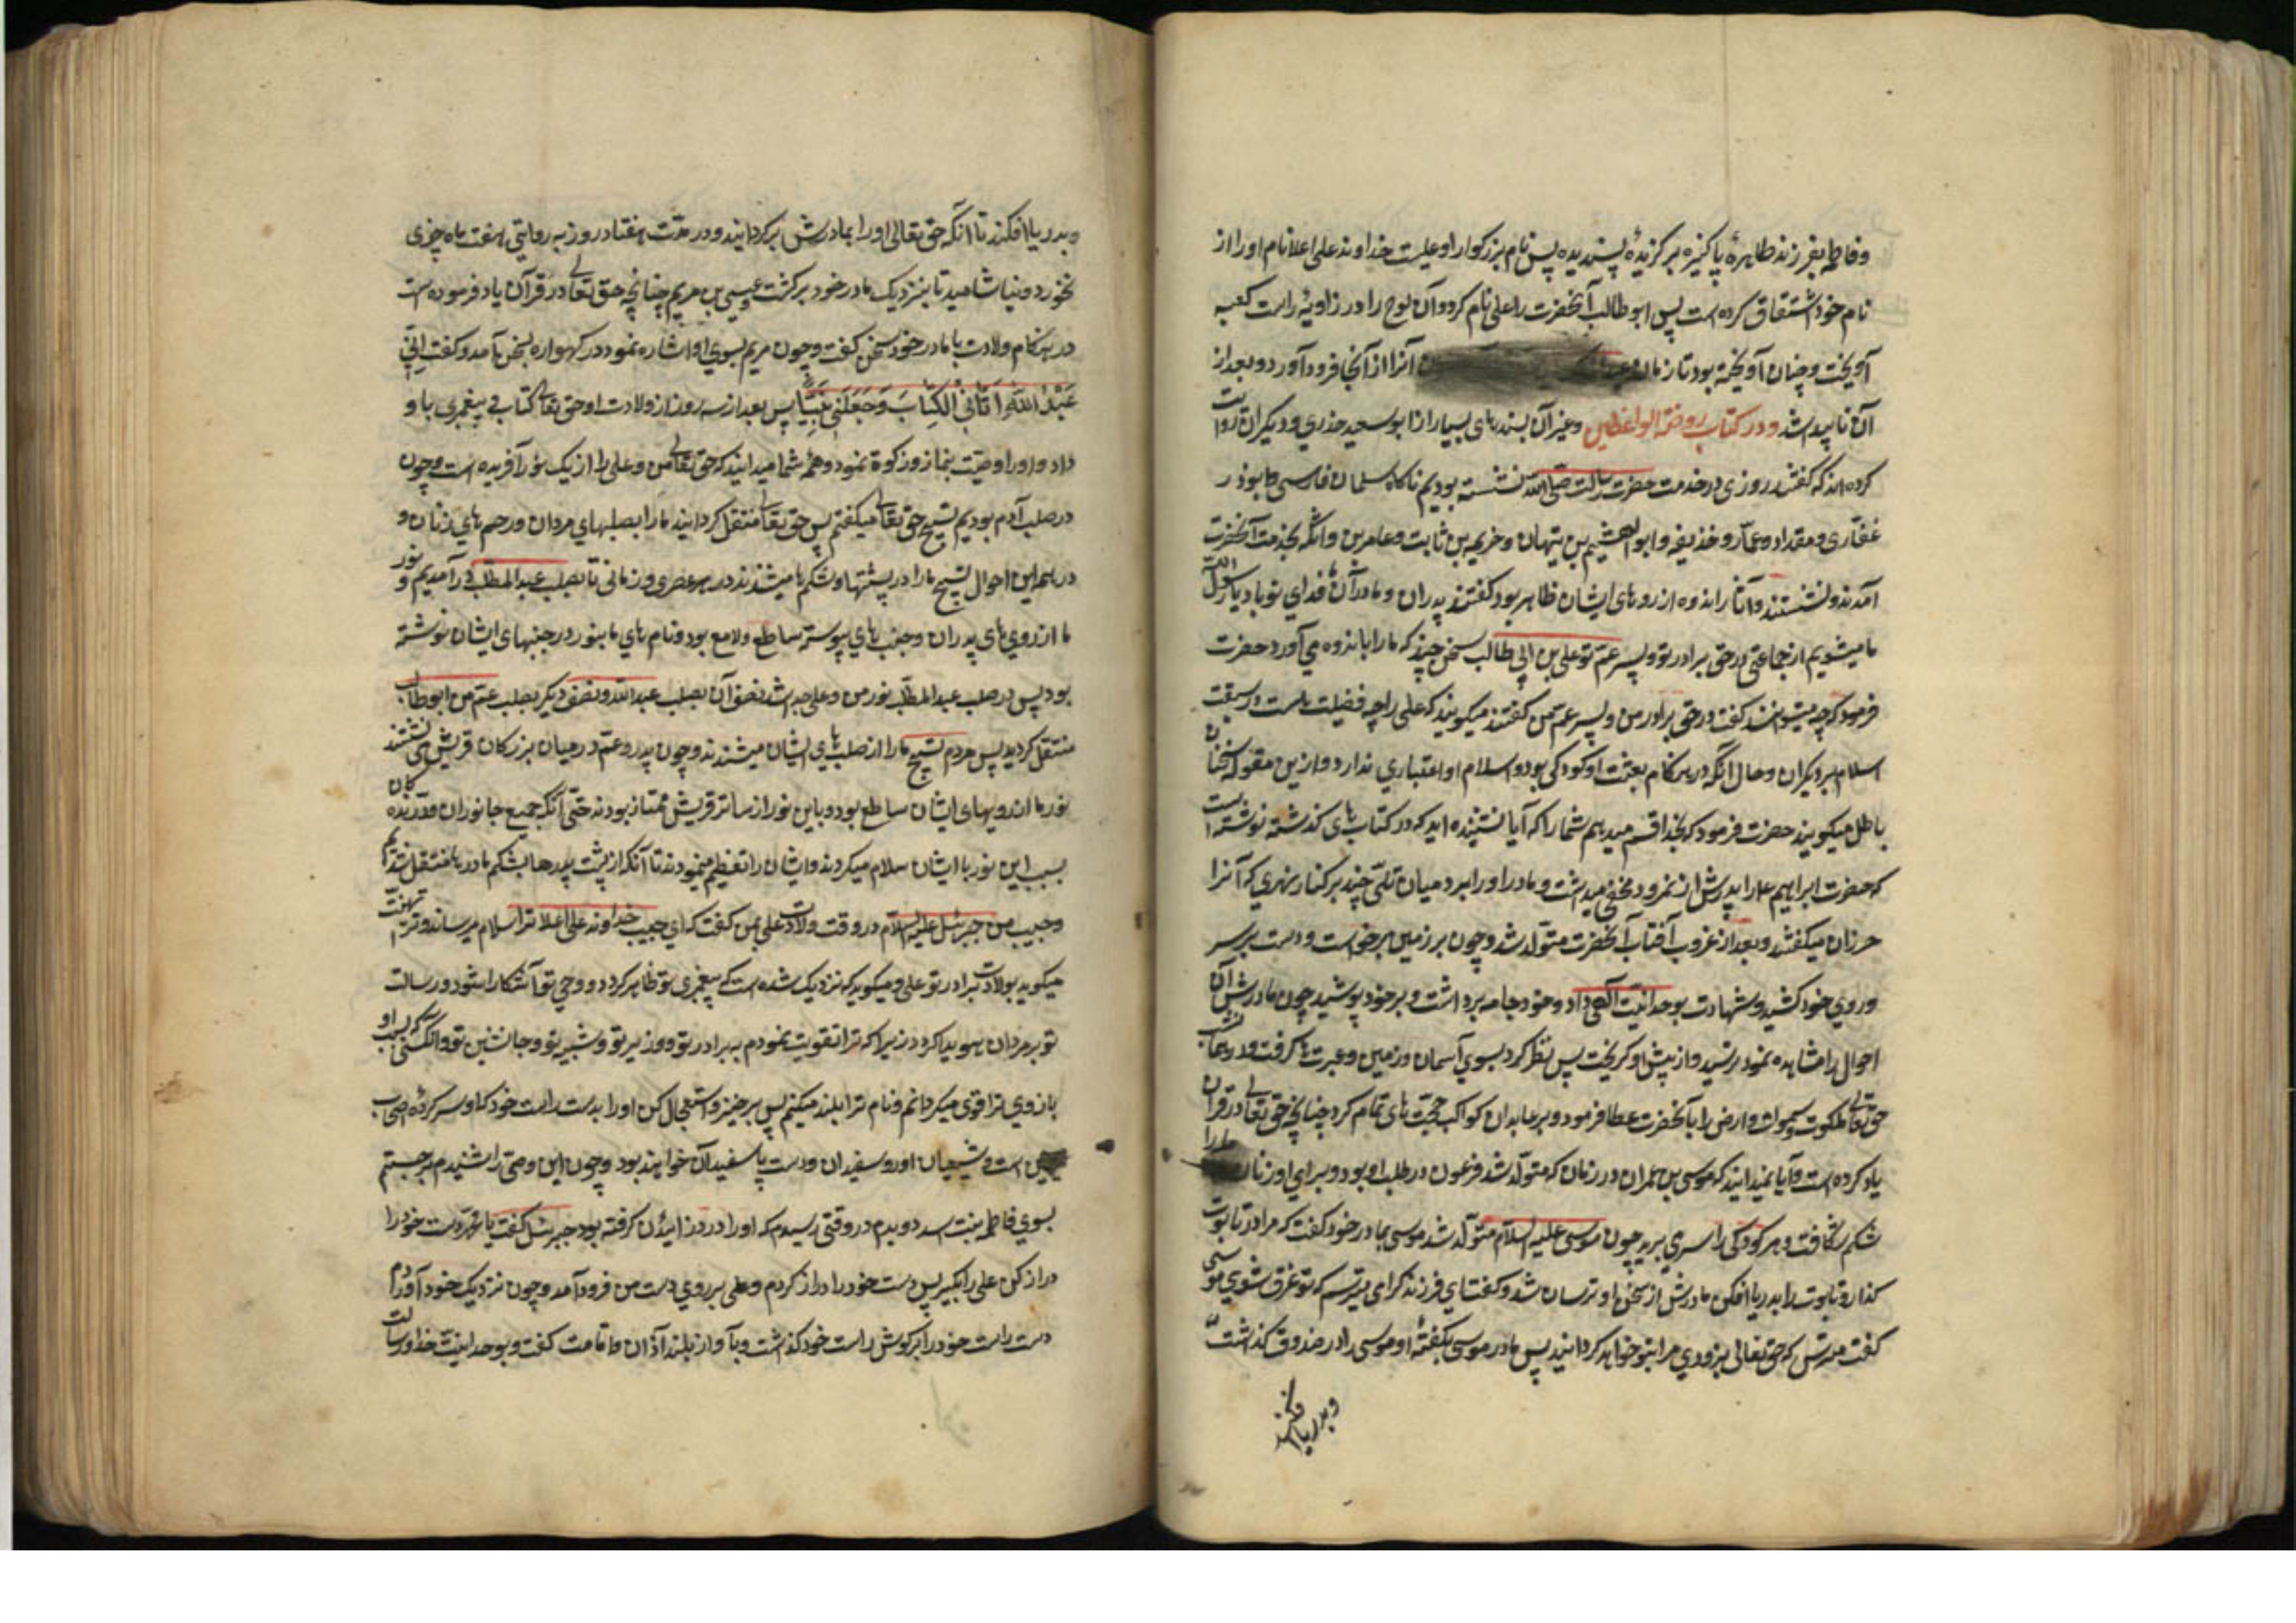 و فاطمه بفرزند طاهرهٔ پاکیزه برگزیدهٔ پسندیده پس نام بزرگوار او علیست خداوند علی اعلا نام او را از
نام خود اشتقاق کرده است پس ابو طالب آنحضرت را علی نام کرد و آن لوح را در زاویهٔ راست کعبه
آویخت و چنان آویخته بود تا زمان آنرا از آنجا فرود آورد و بعد از
آن ناپیدا شد و در کتاب روضة الواعظین و غیر آن بسندهای بسیار از ابو سعید خدری و دیگران روایت
کرده‌اند که گفتند روزی در خدمت حضرت رسالت صلی الله نشسته بودیم ناگاه سلمان فارسی و ابوذر
غفّاری و مقداد و عمّار و حذیفه و ابو الهیثم بن تیهان و خزیمه بن ثابت و عامر بن واثله بخدمت آنحضرت
آمدند و نشستند و آثار اندوه از روهای ایشان ظاهر بود گفتند پدران و مادران ما فدای تو باد یا رسول الله
ما میشنویم از جماعتی در حق برادر تو و پسر عم تو علی بن ابی طالب سخن چند که ما را باندوه می‌آورد حضرت
فرمود که چه میتوانند گفت در حق برادر من و پسر عم من گفتند میگویند که علی را چه فضیلت است در سبقت
اسلام بر دیگران و حال آنکه در هنگام بعثت او کودکی بود و اسلام او اعتباری ندارد و ازین مقوله سخنان
باطل میگویند حضرت فرمود که بخدا قسم میدهم شما را که آیا نشنیده‌اید که در کتاب‌های گذشته نوشته است
که حضرت ابراهیم ع را پدرش از نمرود مخفی میداشت و مادر او را برد میان تلّی چند بر کنار نهری که آنرا
حرزان میگفتند و بعد از غروب آفتاب آنحضرت متولّد شد و چون بر زمین برخواست و دست بر سر
و روی خود کشید و شهادت بوحدانیت الهی داد و خود جامه برداشت و بر خود پوشید چون مادرش آن
احوال را مشاهده نمود ترسید و از پیش او گریخت پس نظر کرد بسوی آسمان و زمین و عبرت‌ها گرفت و در همان شب
حق تعالی ملکوت سموات و ارض را بآنحضرت عطا فرمود و بر عابدان کواکب حجّت‌های تمام کرد چنانچه حق تعالی در قرآن
یاد کرده است و آیا نمیدانید که موسی بن عمران در زمان که متولّد شد فرعون در طلب او بود و برای او زنان حامله را
شکم شکافت و هر کودکی را سر می‌برید چون موسی علیه السلام متولّد شد موسی بمادر خود گفت که مرا در تابوت
گذار و تابوت را بدریا افکن مادرش از سخن او ترسان شد و گفت ای فرزند گرامی میترسم که تو غرق شوی موسی
گفت مترس که حق تعالی بزودی مرا بتو خواهد گردانید پس مادر موسی بگفتهٔ او موسی را در صندوق گذاشت
و بدریا افکند
و بدریا افکند تا آنکه حق تعالی او را بمادرش برگردانید و در مدّت هفتاد روز به روایتی هفت ماه چیزی
نخورد و نیاشامید تا بنزدیک مادر خود برگشت و عیسی بن مریم چنانچه حق تعالی در قرآن یاد فرموده است
در هنگام ولادت با مادر خود سخن گفت و چون مریم بسوی او اشاره نمود در گهواره بسخن آمد و گفت اِنّی
عَبْدُ اللّٰهِ آتَانِیَ الْکِتَابَ وَجَعَلَنِی نَبِیًّا پس بعد از سه روز از ولادت او حق تعالی کتاب و پیغمبری باو
داد و او را وصیّت بنماز و زکوة نمود و همه شما میدانید که حق تعالی من و علی را از یک نور آفریده است و چون
در صلب آدم بودیم تسبیح حق تعالی میگفتیم پس حق تعالی منتقل گردانید ما را بصلبهای مردان و رحم‌های زنان و
در همه این احوال تسبیح ما را در پشتها و شکم‌ها میشنیدند در هر عصری و زمانی تا بصلب عبد المطلب در آمدیم و نور
ما از روی‌های پدران و جنب‌های پیوسته ساطع و لامع بود و نام‌های ما بنور در جبینهای ایشان نوشته
بود پس در صلب عبد المطلب نور من و علی جدا شد نصف آن بصلب عبد الله و نصف دیگر بصلب عمّ من ابو طالب
منتقل گردید پس مردم تسبیح ما را از صلب‌های ایشان میشنیدند و چون پدر و عمّ در میان بزرگان قریش می‌نشستند
نور ما از رویهای ایشان ساطع بود و باین نور از سائر قریش ممتاز بودند حتّی آنکه جمیع جانوران و درّندگان
بسبب این نور با ایشان سلام میکردند و ایشان را تعظیم مینمودند تا آنکه از پشت پدرها بشکم مادرها منتقل شدیم
و حبیب من جبرئیل علیه السلام در وقت ولادت علی بمن گفت که ای حبیب خداوند علی اعلا ترا سلام میرساند و ترا تهنیت
میگوید بولادت برادر تو علی و میگوید که نزدیک شده است که پیغمبری تو ظاهر گردد و وحی تو آشکارا شود و رسالت
تو بر مردان هویدا گردد زیرا که ترا تقویت نمودم به برادر تو و وزیر تو و شبیه تو و جانشین تو و آنکسی که بسبب او
بازوی ترا قوی میگردانم و نام ترا بلند میکنم پس برخیز و استقبال کن او را بدست راست خود که او سرکردهٔ اصحاب
یمین است و شیعیان او رو سفیدان و دست و پا سفیدان خواهند بود و چون این وحی را شنیدم برجستم
بسوی فاطمه بنت اسد دویدم در وقتی رسیدم که او را درد زائیدن گرفته بود جبرئیل گفت یا محمد دست خود را
دراز کن علی را بگیر پس دست خود را دراز کردم و علی بر روی دست من فرود آمد و چون نزدیک خود آوردم
دست راست خود را بر گوش راست خود گذاشت و بآواز بلند آذان و اقامت گفت و بوحدانیّت خدا و رسالت